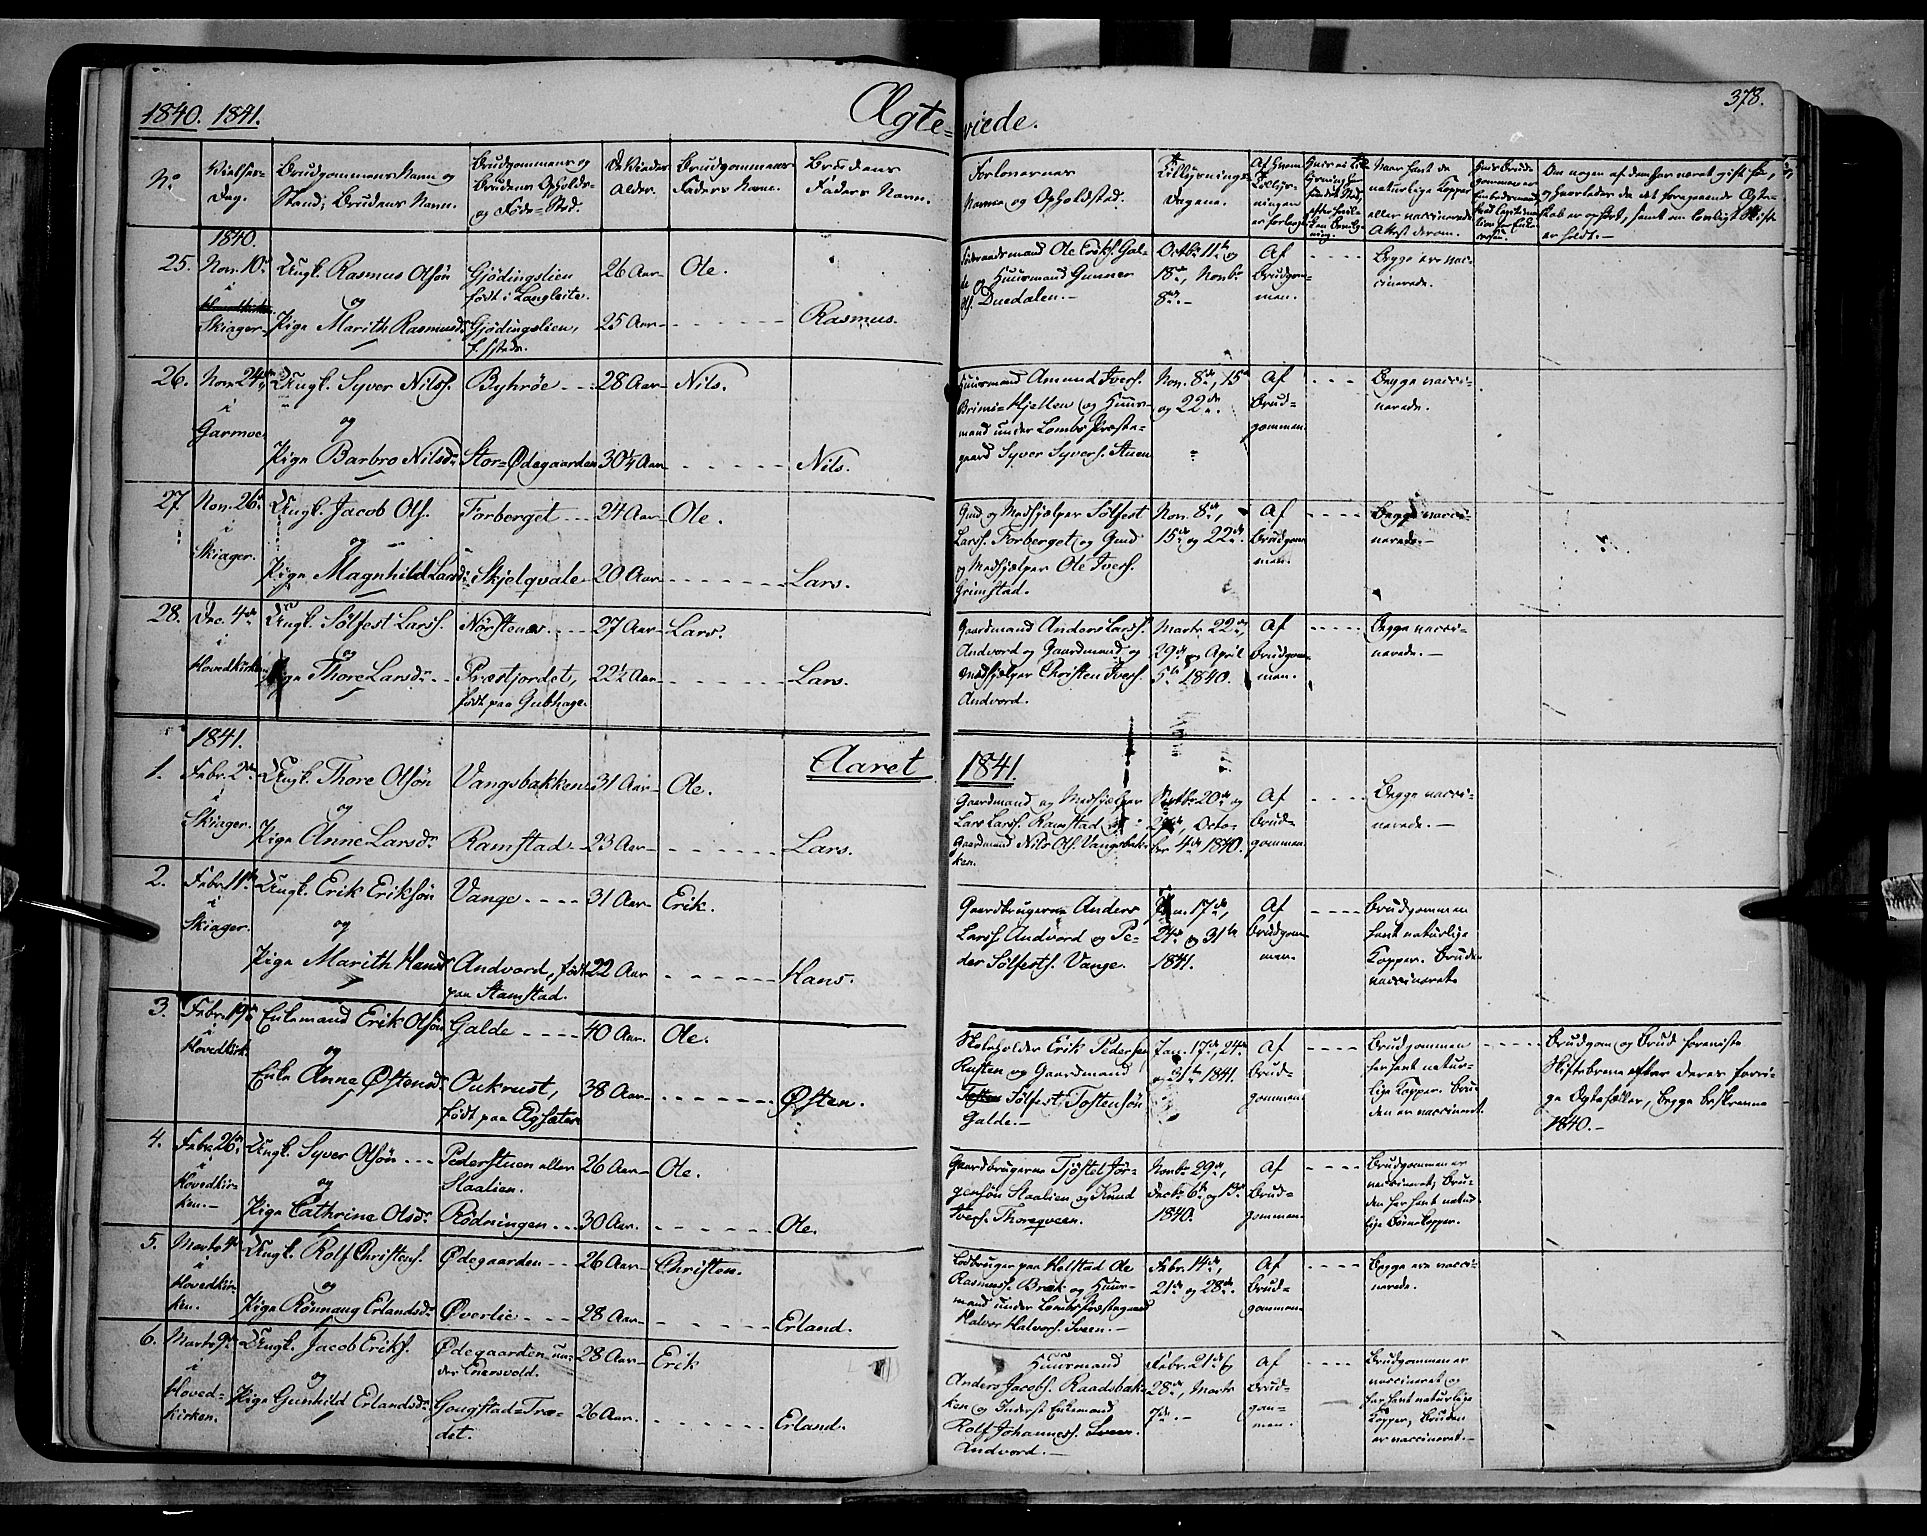 1840. 1841.
Ægte=
viede.
378.
No
Vielses-
Dag.
Brudgommens Navn og
Stand; Brudens Navn.
Brudgommens og
Brudens Opholds-
og Føde=Sted.
De Viedes
Alder.
Brudgommens
Faders Navn.
Brudens
Faders Navn.
Forlovernes
Navne og Opholdsted.
Tillysnings-
Dagene.
Af hvem
Tillys-
ningen
er forlangt
Naar havt de
naturlige Kopper
eller vaccinerede
Attest derom.
Om nogen af dem har været gift før,
og hvorledes da det foregaaende Ægte-
skab er ophørt, samt om lovligt Skifte
er holdt.-
1840.
25. Nov. 10de
i
Skiager.
Ungk. Rasmus Olsøn
og
Pige Marith Rasmusd.
Gjödingslien
født i Langleite.
Gjödingslien,
f. sstds.
26 Aar
25 Aar
Ole.
Rasmus.
Føderaadsmand Ole Eriks. Gal-
de og Huusmand Gunner
Ols. Duedalen.-
Octbr 11te og
18de, Novbr
8de.-
Af
Brudgom-
men.
Begge ere vac-
cinerede.
26. Nov. 24de
i
Garmoe.
Ungk. Syver Nils.
og
Pige Barbro Nilsd.
Byhrøe
Stor=Ødegaarden
28 Aar
30½ Aar
Nils.
Nils.
Huusmand Amund Ivers.
Brimi=Hjellen og Huus-
mand under Lombs Præste-
gaard Syver Syvers. Stuen
Nov. 8de, 15de
og 22de.
Af
Brud-
gommen
Begge vacci-
nerede.
27. Nov. 26de
i
Skiager.
Ungk. Jacob Ols.
og
Pige Magnhild Larsd.
Forberget
Skjelqvale
24 Aar
20 Aar
Ole.
Lars.
Gmd og Medhjælper Sølfest
Lars. Forberget og Gmd
og Medhjælper Ole Ivers.
Grimstad.
Nov. 8de,
15de og 22de.
Af
Brudgom-
men.
Begge vacci-
nerede.-
28. Dec. 4de
i
Hovedkirken
Ungk. Sølfest Lars.
og
Pige Thore Larsd.
Nørstenes
Præstjordet,
født paa Gubhage.
27 Aar
22½ Aar
Lars.
Lars.
Gaardmand Anders Lars.
Andvord og Gaardmand og
Medhjælper Christen Ivers.
Andvord.
Marts 22de,
29de og April
5te 1840.
Af
Brudgom-
men.
Begge vacci-
nerede.-
Aaret
1841.
1841.
1. Febr. 2den
i
Skiager.
Ungk. Thore Olsøn
og
Pige Anne Larsd.
Vangsbakken
Ramstad
31 Aar
23 Aar
Ole.
Lars.
Gaardmand og Medhjælper
Lars Lars. Ramstad og
Gaardmand Nils Ols. Vangsbak-
ken.
Septbr 20de og
27de, Octo-
ber 4de 1840.
Af
Brud-
gommen
Begge vacci-
nerede.-
2. Febr. 11te
i
Skiager.
Ungk. Erik Eriksøn
og
Pige Marith Hansd.
Vange
Andvord, født
paa Stamstad.
31 Aar
22 Aar
Erik.
Hans.
Gaardbrugerne Anders
Lars. Andvord og Pe-
der Sølfests. Vange.
Jan. 17de,
24de og 31te
1841.
Af
Brudgom-
men.
Brudgommen
havt naturlige
Kopper. Bruden
vaccineret
3. Febr. 19de
i
Hovedkirk.
Enkemand Erik Olsøn
og
Enke Anne Østensd.
Galde
Aukrust,
født paa Elgsæter
40 Aar.
38 Aar
Ole.
Østen.
Erik Pedersen
og Gaardmand
Sølfest Tostensøn
Galde.-
Jan. 17de, 24de
og 31te 1841.
Af
Brud-
gommen
Brudgommen
har havt natur-
lige Kopper. Bru-
den er vaccineret.
Brudgom og Brud foreviste
Skiftebreve efter deres forri-
ge Ægtefæller, begge beskrevne
1840.-
4. Febr. 26de
i
Hovedkir-
ken.-
Ungk. Syver Olsøn
og
Pige Cathrine Olsd.
Pederstuen eller
Staalien.
Rödningen
26 Aar
30 Aar.
Ole.
Ole.
Gaardbrugerne Tjøstel Jör-
gensøn Staalien og Knud
Ivers. Thorgveen.
Novbr 29de,
Decbr 6te og 13de
1840.
Af
Brud-
gommen
Brudgommen er
vaccineret; Bru-
den har havt natur-
lige Børnekopper.
5. Marts 4de
i
Hovedkir-
ken.
Ungk. Rolf Christens.
og
Pige Rønnaug Erlandsd.
Ødegaarden
Øverlie
26 Aar
28 Aar
Christen.
Erland.
Lodbruger paa Helstad Ole
Rasmus. Bræk og Huus-
mand under Lombs Præstegaard
Halvor Halvors. Sveen.-
Febr. 14de,
21de og 28de
Af
Brud-
gommen
Begge ere vacci-
nerede.
6. Marts 9de
i
Hoved-
kirken.
Ungk. Jacob Eriks.
og
Pige Gunhild Erlandsd.
Ødegaarden un-
der Enersvold.
Gougstad=Træ-
det.
28 Aar
26 Aar.
Erik
Erland.
Huusmand
Anders Jacobs. Raadsbak-
ken og Inderst Enkemand
Rolf Johannes. Sveen
Andvord.-
Febr. 21de og
28de, Marts
7de.-
Af
Brud-
gom-
men.
Brudgommen er
vaccineret og
har havt naturlige
Kopper; Bruden
er vaccineret.-